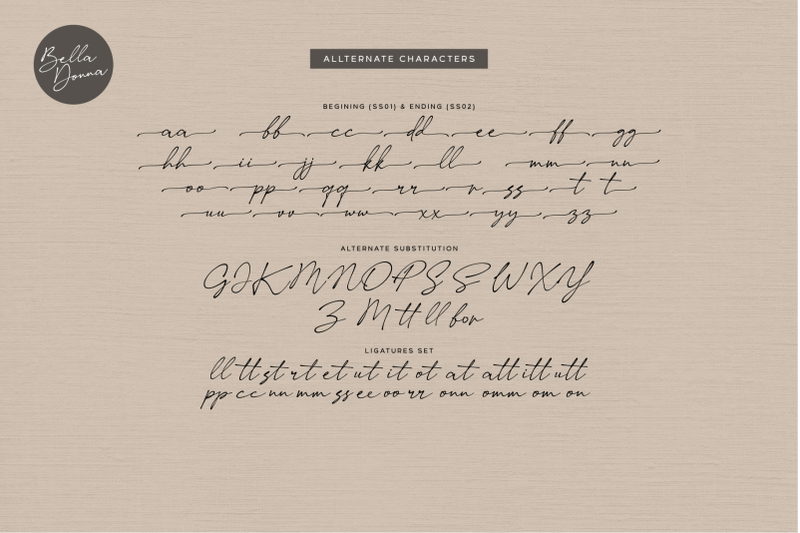 Bella
Donna
ALLTERNATE CHARACTERS
BEGINING (SS01) & ENDING (SS02)
aa bb cc dd ee ff gg
hh ii jj kk ll mm nn
oo pp qq rr r ss t t
uu vv ww xx yy zz
ALTERNATE SUBSTITUTION
GJKMNOPSSWXY
Z M tt ll for
LIGATURES SET
ll tt st rt et ut it ot at att itt utt
pp cc nn mm ss ee oo rr onn omm om on